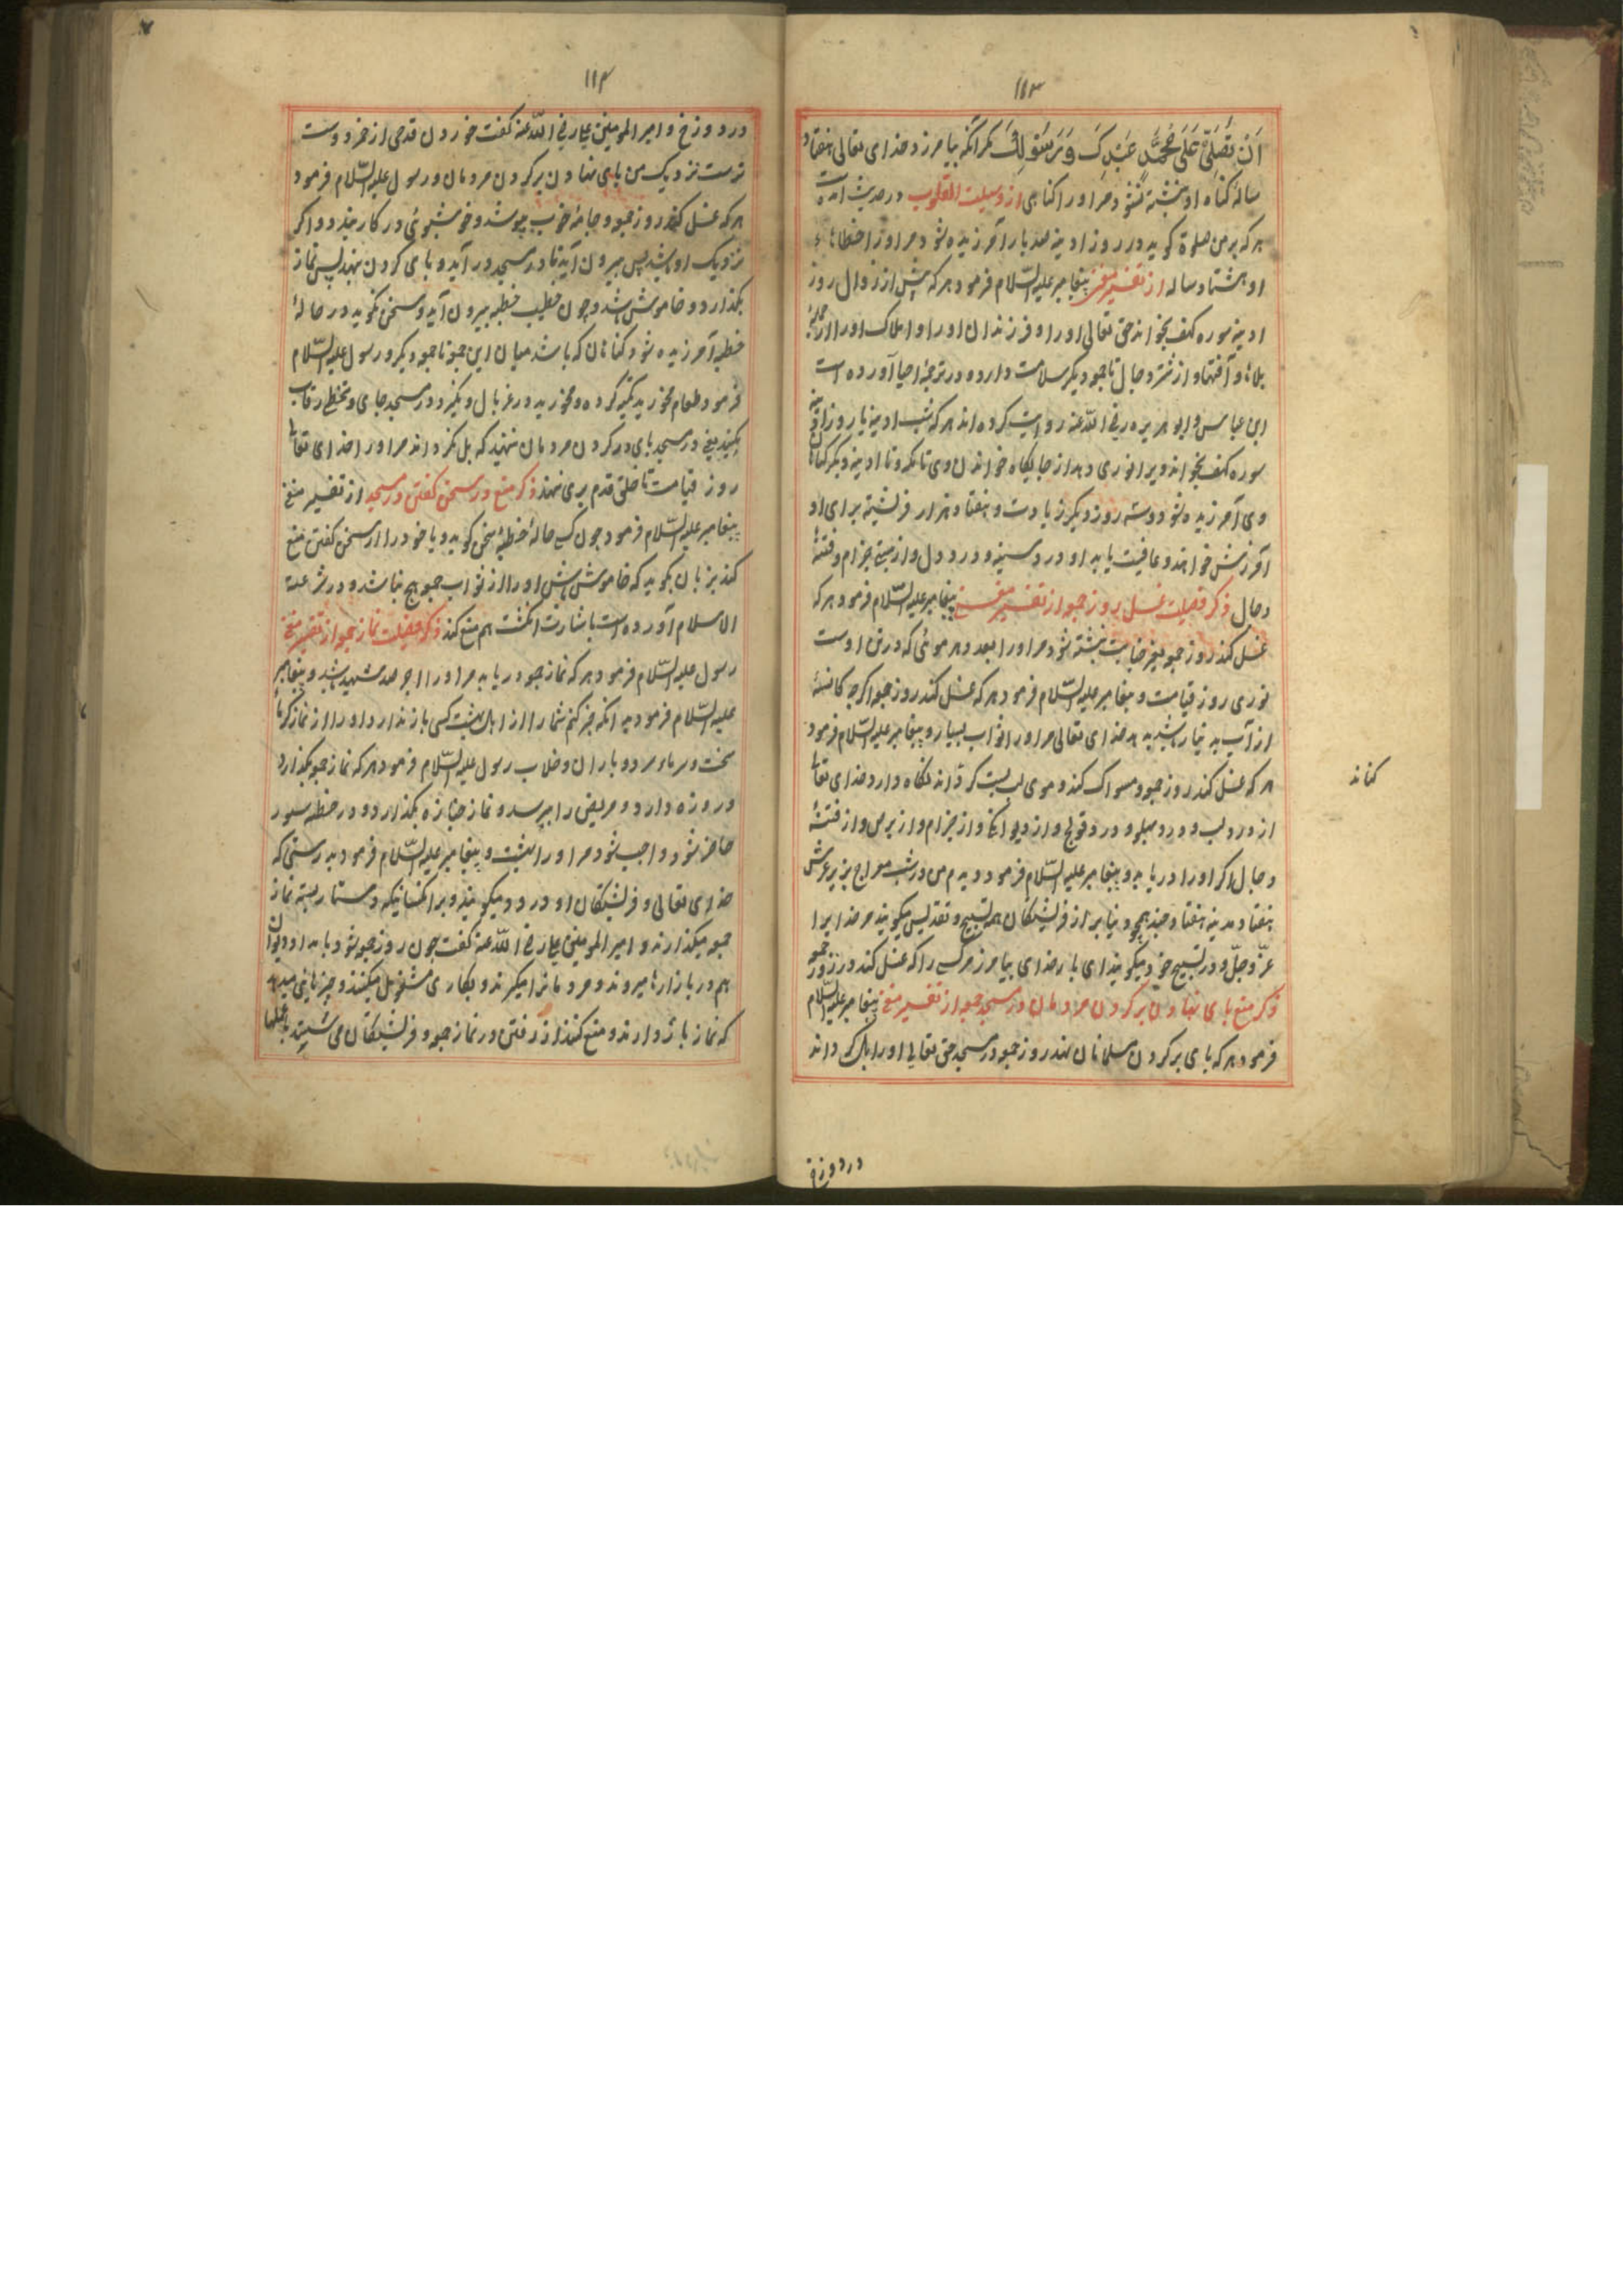 ۱۱۳
اَنْ تُصَلِّیَ عَلَی مُحَمَّدٍ عَبْدِکَ وَرَسُوْلِکَ مکر آنکه بیامرزد خدای تعالی هفتاد
ساله کناه او نبشته نشود مر اورا کناهی از وسیلت القلوب در حدیث آمده است
هر که بر من صلوة کوید در روز ادینه صد بار آمرزیده شود مر اورا خطاهاء
او هشتاد ساله از تفسیر مغنی پیغامبر علیه السّلام فرمود هر که پیش از زوال روز
ادینه سوره کهف بخواند حق تعالی اورا و فرزندان اورا و املاک اورا از جمله
بلاها و آفتها و از شر دجال تا جمعه دیکر سلامت دارد و در ترجمهٔ احیا آورده است
ابن عباس و ابو هریره رضی اللّه عنه روایت کرده اند هر که شب ادینه یا روز ادینه
سوره کهف بخواند ویرا نوری دهد از جایکاه خواندن وی تا مکه و تا ادینه دیکر کناهان
وی آمرزیده شود و سه روز دیکر زیادت و هفتاد هزار فرشته برای او
آمرزش خواهند و عافیت یابد او در د سینه و درد دل و از جذام و فتنهٔ
دجال ذکر فضیلت غسل روز جمعه از تفسیر مغنی پیغامبر علیه السّلام فرمود هر که
غسل کند روز جمعه بغیر جنابت نبشته شود مر اورا بعدد هر موئی که در تن اوست
نوری روز قیامت و پیغامبر علیه السّلام فرمود هر که غسل کند روز جمعه اکرچه کاسهٔ
از آب به دینار باشد بدهد خدای تعالی مر اورا ثواب بسیار و پیغامبر علیه السّلام فرمود
هر که غسل کند روز جمعه و مسواک کند و موی لب پست کرداند نکاه دارد خدای تعالی
از درد لب و درد پهلو و درد قولنج و از دیوانکی و از جذام و از برص و از فتنهٔ
دجال اکر اورا دریابد و پیغامبر علیه السّلام فرمود دیدم من در شب معراج بزیر عرش
هفتاد مدینه هفتاد چند همچو دنیا پر از فریشتکان همه تسبیح و تقدیس میکویند مر خدایرا
عزّ و جلّ و در تسبیح خود میکویند ای بار خدای بیامرز مر کسی را که غسل کند در روز جمعه
ذکر منع پای نهادن بر کردن مردمان در مسجد جمعه از تفسیر مغنی پیغامبر علیه السّلام
فرمود هر که پای بر کردن مسلمانان نهد روز جمعه در مسجد حق تعالی اورا هلاک داند
کناند
در دوزخ
۱۱۴
در دوزخ و امیر المومنین علی رضی اللّه عنه کفت خوردن قدحی از خمر دوست
ترست نزدیک من پای نهادن بر کردن مردمان و رسول علیه السّلام فرمود
هر که غسل کند روز جمعه و جامه خوب بپوشد و خوشبوئی در کار بندد و اکر
نزدیک او باشد پس بیرون آید تا در مسجد در آید و پای کردن ننهد پس نماز
بکذارد و خاموش باشد و چون خطیب خطبه بیرون آید و سخن نکوید در حالهٔ
خطبه آمرزیده شود کناهان که باشد میان این جمعه تا جمعه دیکر و رسول علیه السّلام
فرمود طعام مخورید تکیه کرده و مخورید در غربال و نکیرد در مسجد جای و تخطی رقاب
نکنید یعنی در مسجد پای در کردن مردمان ننهید که پل کرداند مر اورا خدای تعالی
روز قیامت تا خلق قدم بروی نهند ذکر منع در سخن کفتن در مسجد از تفسیر مغنی
پیغامبر علیه السّلام فرمود چون کسی حالهٔ خطبه سخن کوید و یا خود را از سخن کفتن منع
کند بزبان بکوید که خاموش باش اورا از ثواب جمعه هیچ نباشد و در شرعة
الاسلام آورده است باشارت انکشت هم منع کند ذکر فضیلت نماز جمعه از تفسیر مغنی
رسول علیه السّلام فرمود هر که نماز جمعه دریابد مر اورا اجر صد شهید باشد و پیغامبر
علیه السّلام فرمود بدانکه خبر کنم شما را از اهل بهشت کسی باز ندارد اورا از نماز کرماء
سخت و سرماء سرد و باران و خلاب رسول علیه السّلام فرمود هر که نماز جمعه بکذارد
و روزه دارد و مریض را بپرسد و نماز جنازه بکذارد و در خطبه
حاضر شود واجب شود مر اورا بهشت و پیغامبر علیه السّلام فرمود بدرستی که
خدای تعالی و فریشتکان او درود میکویند بر آن کسانیکه دستار بسته نماز
جمعه میکذارند و امیر المومنین علی رضی اللّه عنه کفت چون روز جمعه شود بامداد دیوان
هم در بازارها میروند و مردمانرا میکیرند و بکاری مشغول میکنند و چیزهایی میدهند
که نماز باز دارند و منع کنند از رفتن در نماز جمعه و فریشتکان می نشینند